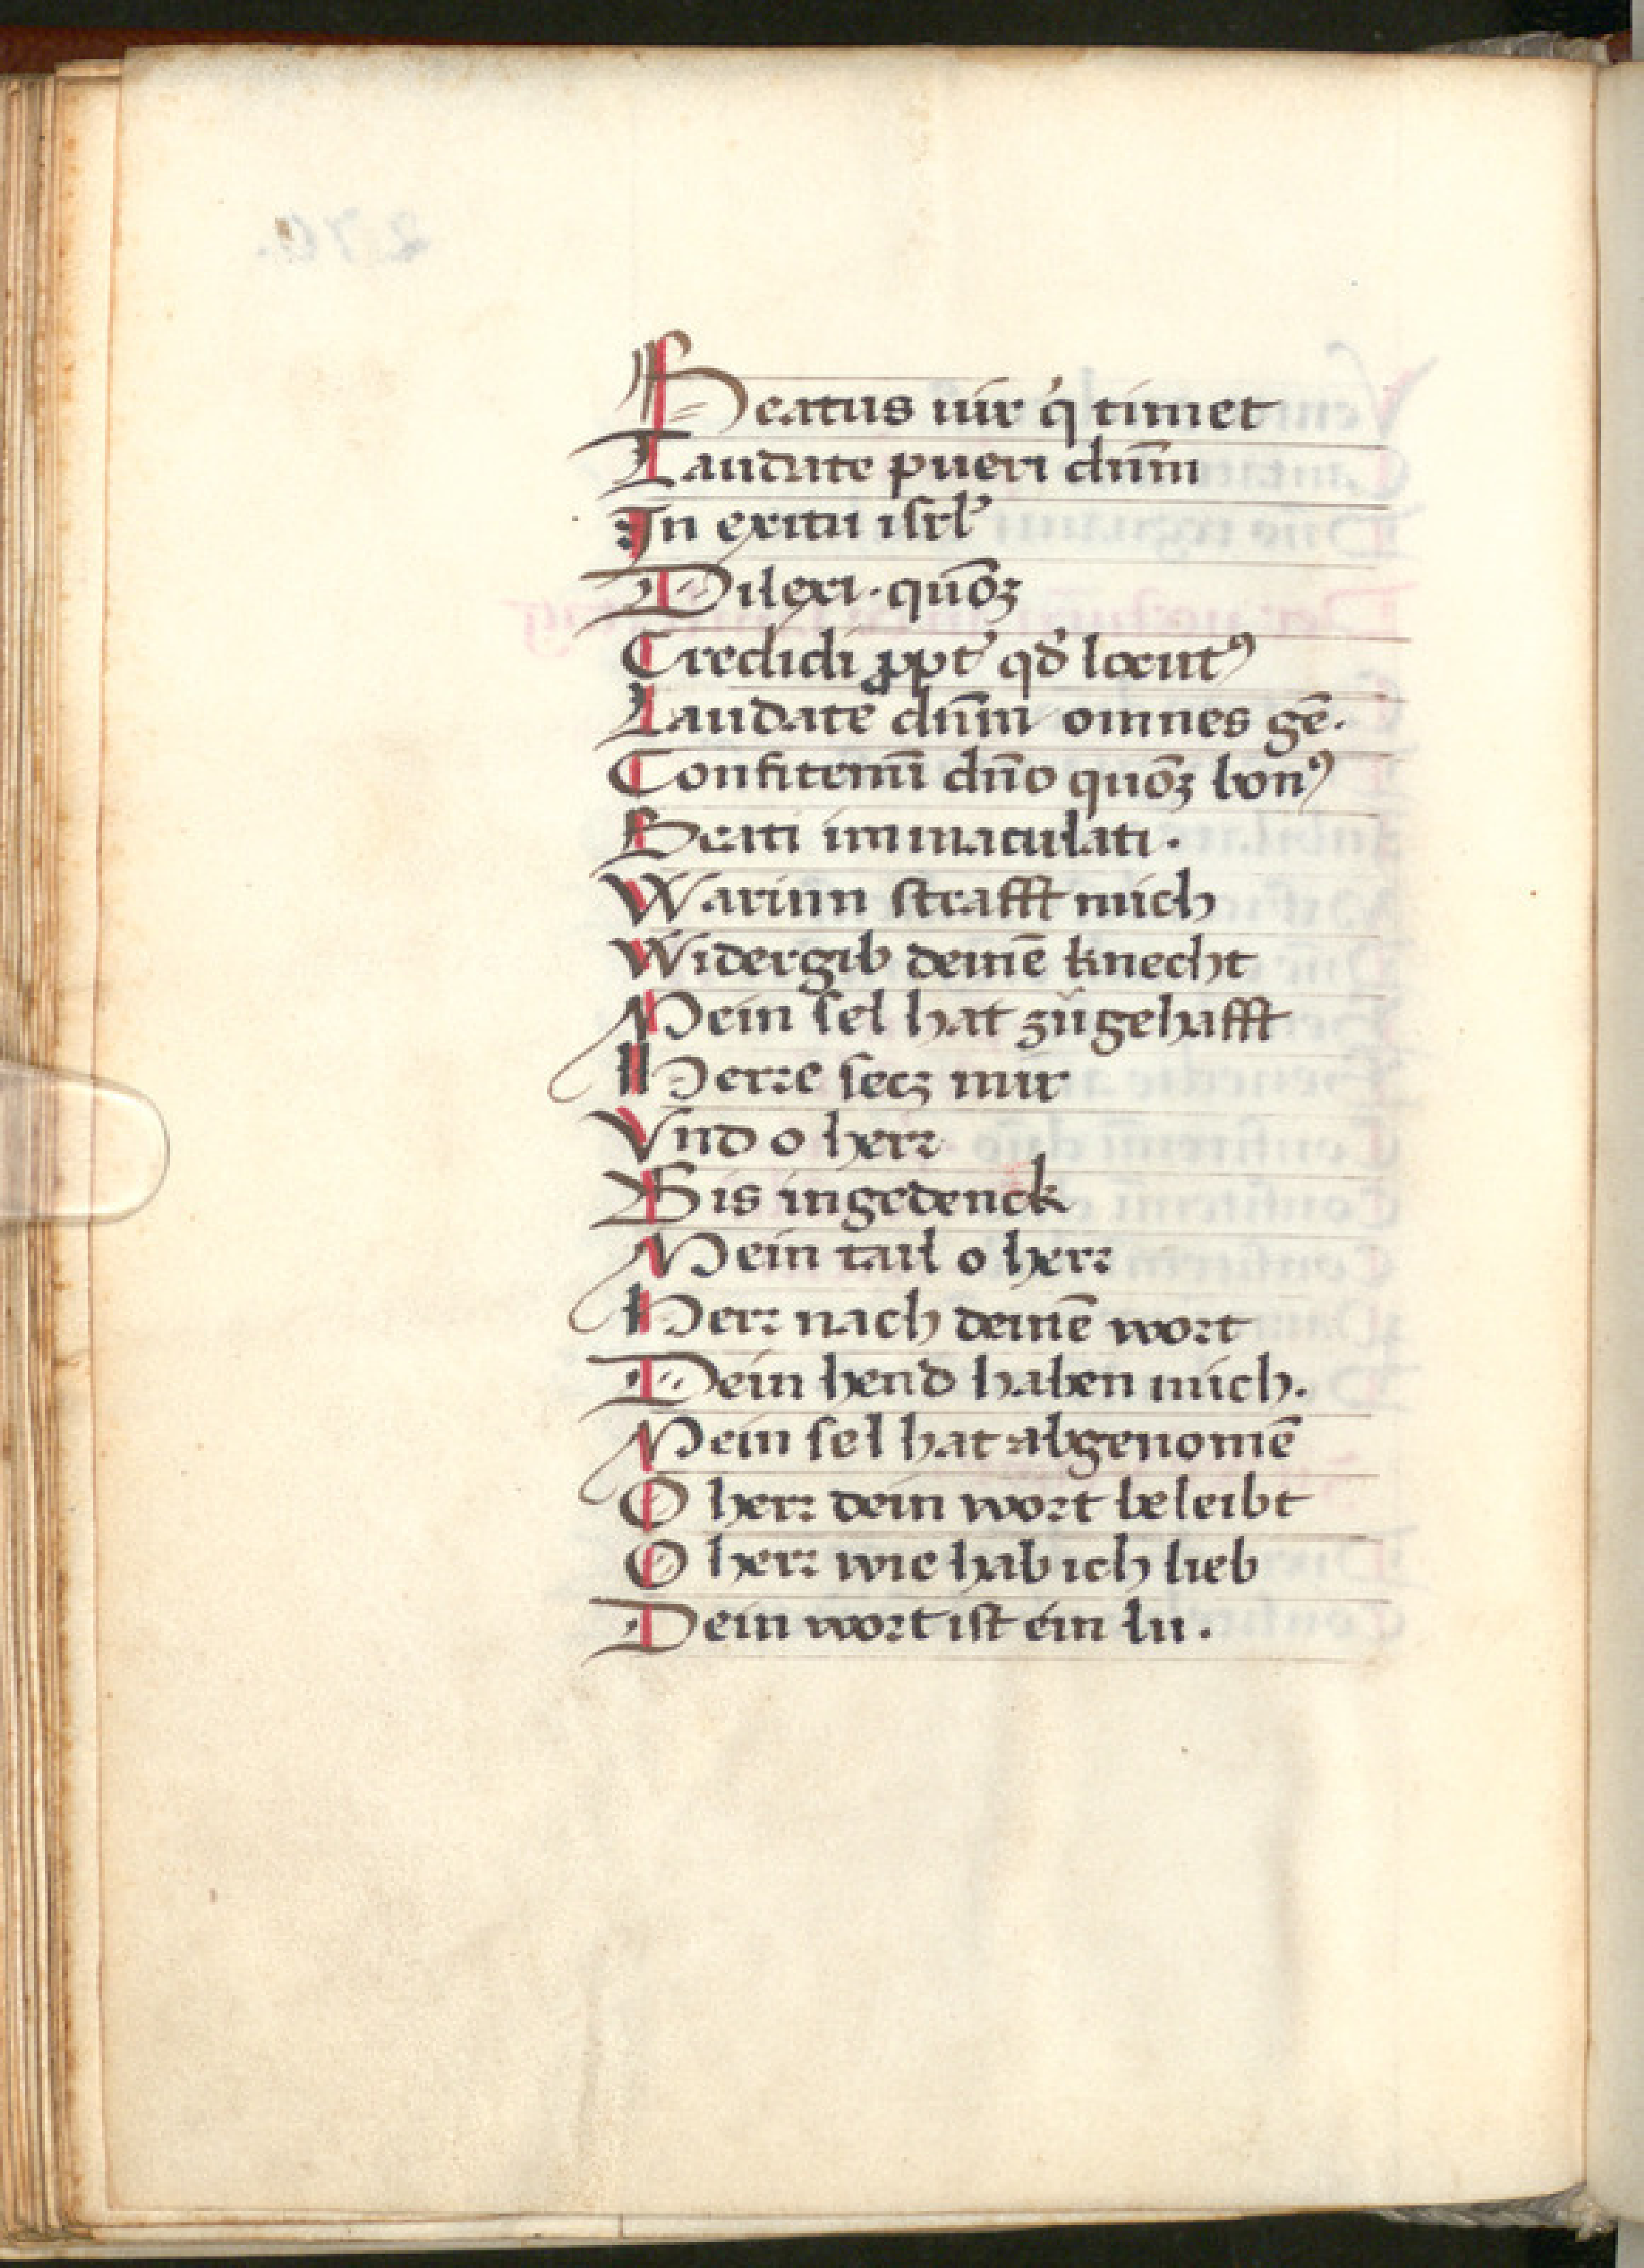 Beatus uir q̇ timet
Laudate pueri dn̄m
In exitu isrl̾
Dilexi · quō̄ꝫ
Credidi ꝓpt̾ qd̾ locutꝰ
Laudate dn̄m omnes gē·
Confitemī dn̄o quōꝫ bonꝰ
Beati immaculati ·
Warinn strafft mich
Widergib deinē knecht
Mein sel hat zůgehafft
Herre secz mir
Vnd o herr
Bis ingedenck
Mein tail o herr
Herr nach deinē wort
Dein hend haben mich.
Mein sel hat abgenomē
O herr dein wort beleibt
O herr wie hab ich lieb
Dein wort ist ein lu ·